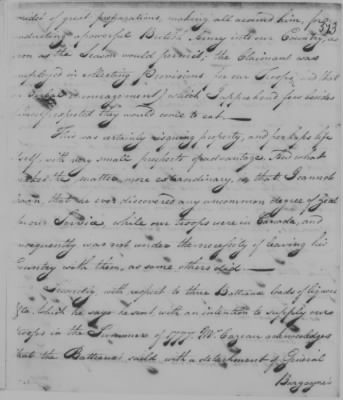 midst of great preparations, making all around him, for 323
conducting a powerful British Army into our Country, as
soon as the Season would permit; the Claimant was
employed in collecting Provisions for our Troops, and that
encouragement) which I apprehend few besides
himself expected they would come to eat.—
This was certainly risquing property, and perhaps life
itself, with very small prospects of advantage. And what
makes the matter more extraordinary, is that I cannot
learn, that he ever discovered any uncommon degree of Zeal
in our Service, while our troops were in Canada, and
consequently was not under the necessity of leaving his
Country with them, as some others did.—
Secondly with respect to three Batteaux loads of liquors
&ca. which he says he sent, with an intention to supply our
troops in the Summer of 1777. Mr. acknowledges
that the Batteaux saild with a detachment of General
Burgoyne's